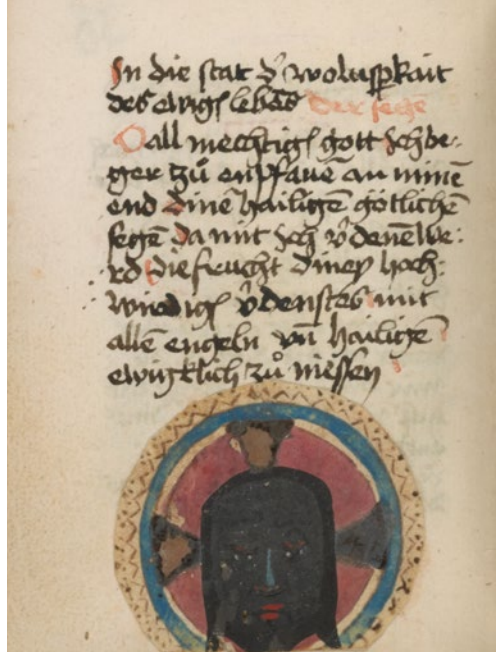 In die stat d̕ woluspͤkait
des ewigē lebēs Der segē
O all mechtigʼ gott Ich be⸗
ger zů enpfauē an minē
end dinē hailigē götlichē
segē da mit Ich v̓denē we⸗
rd die frucht dineß hoch⸗
wirdigē v̓denstes mit
allē engeln vn̄ hailigē
ewigklich zů niessen